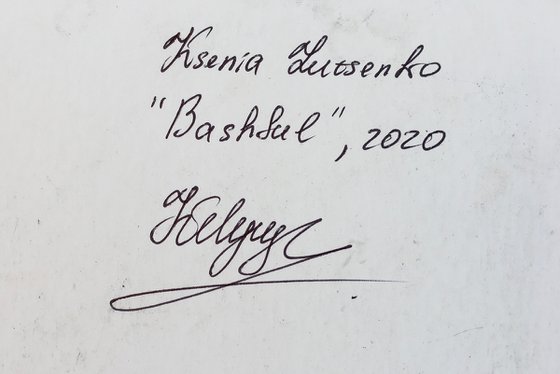 Ksenia Lutsenko
"Bashful", 2020